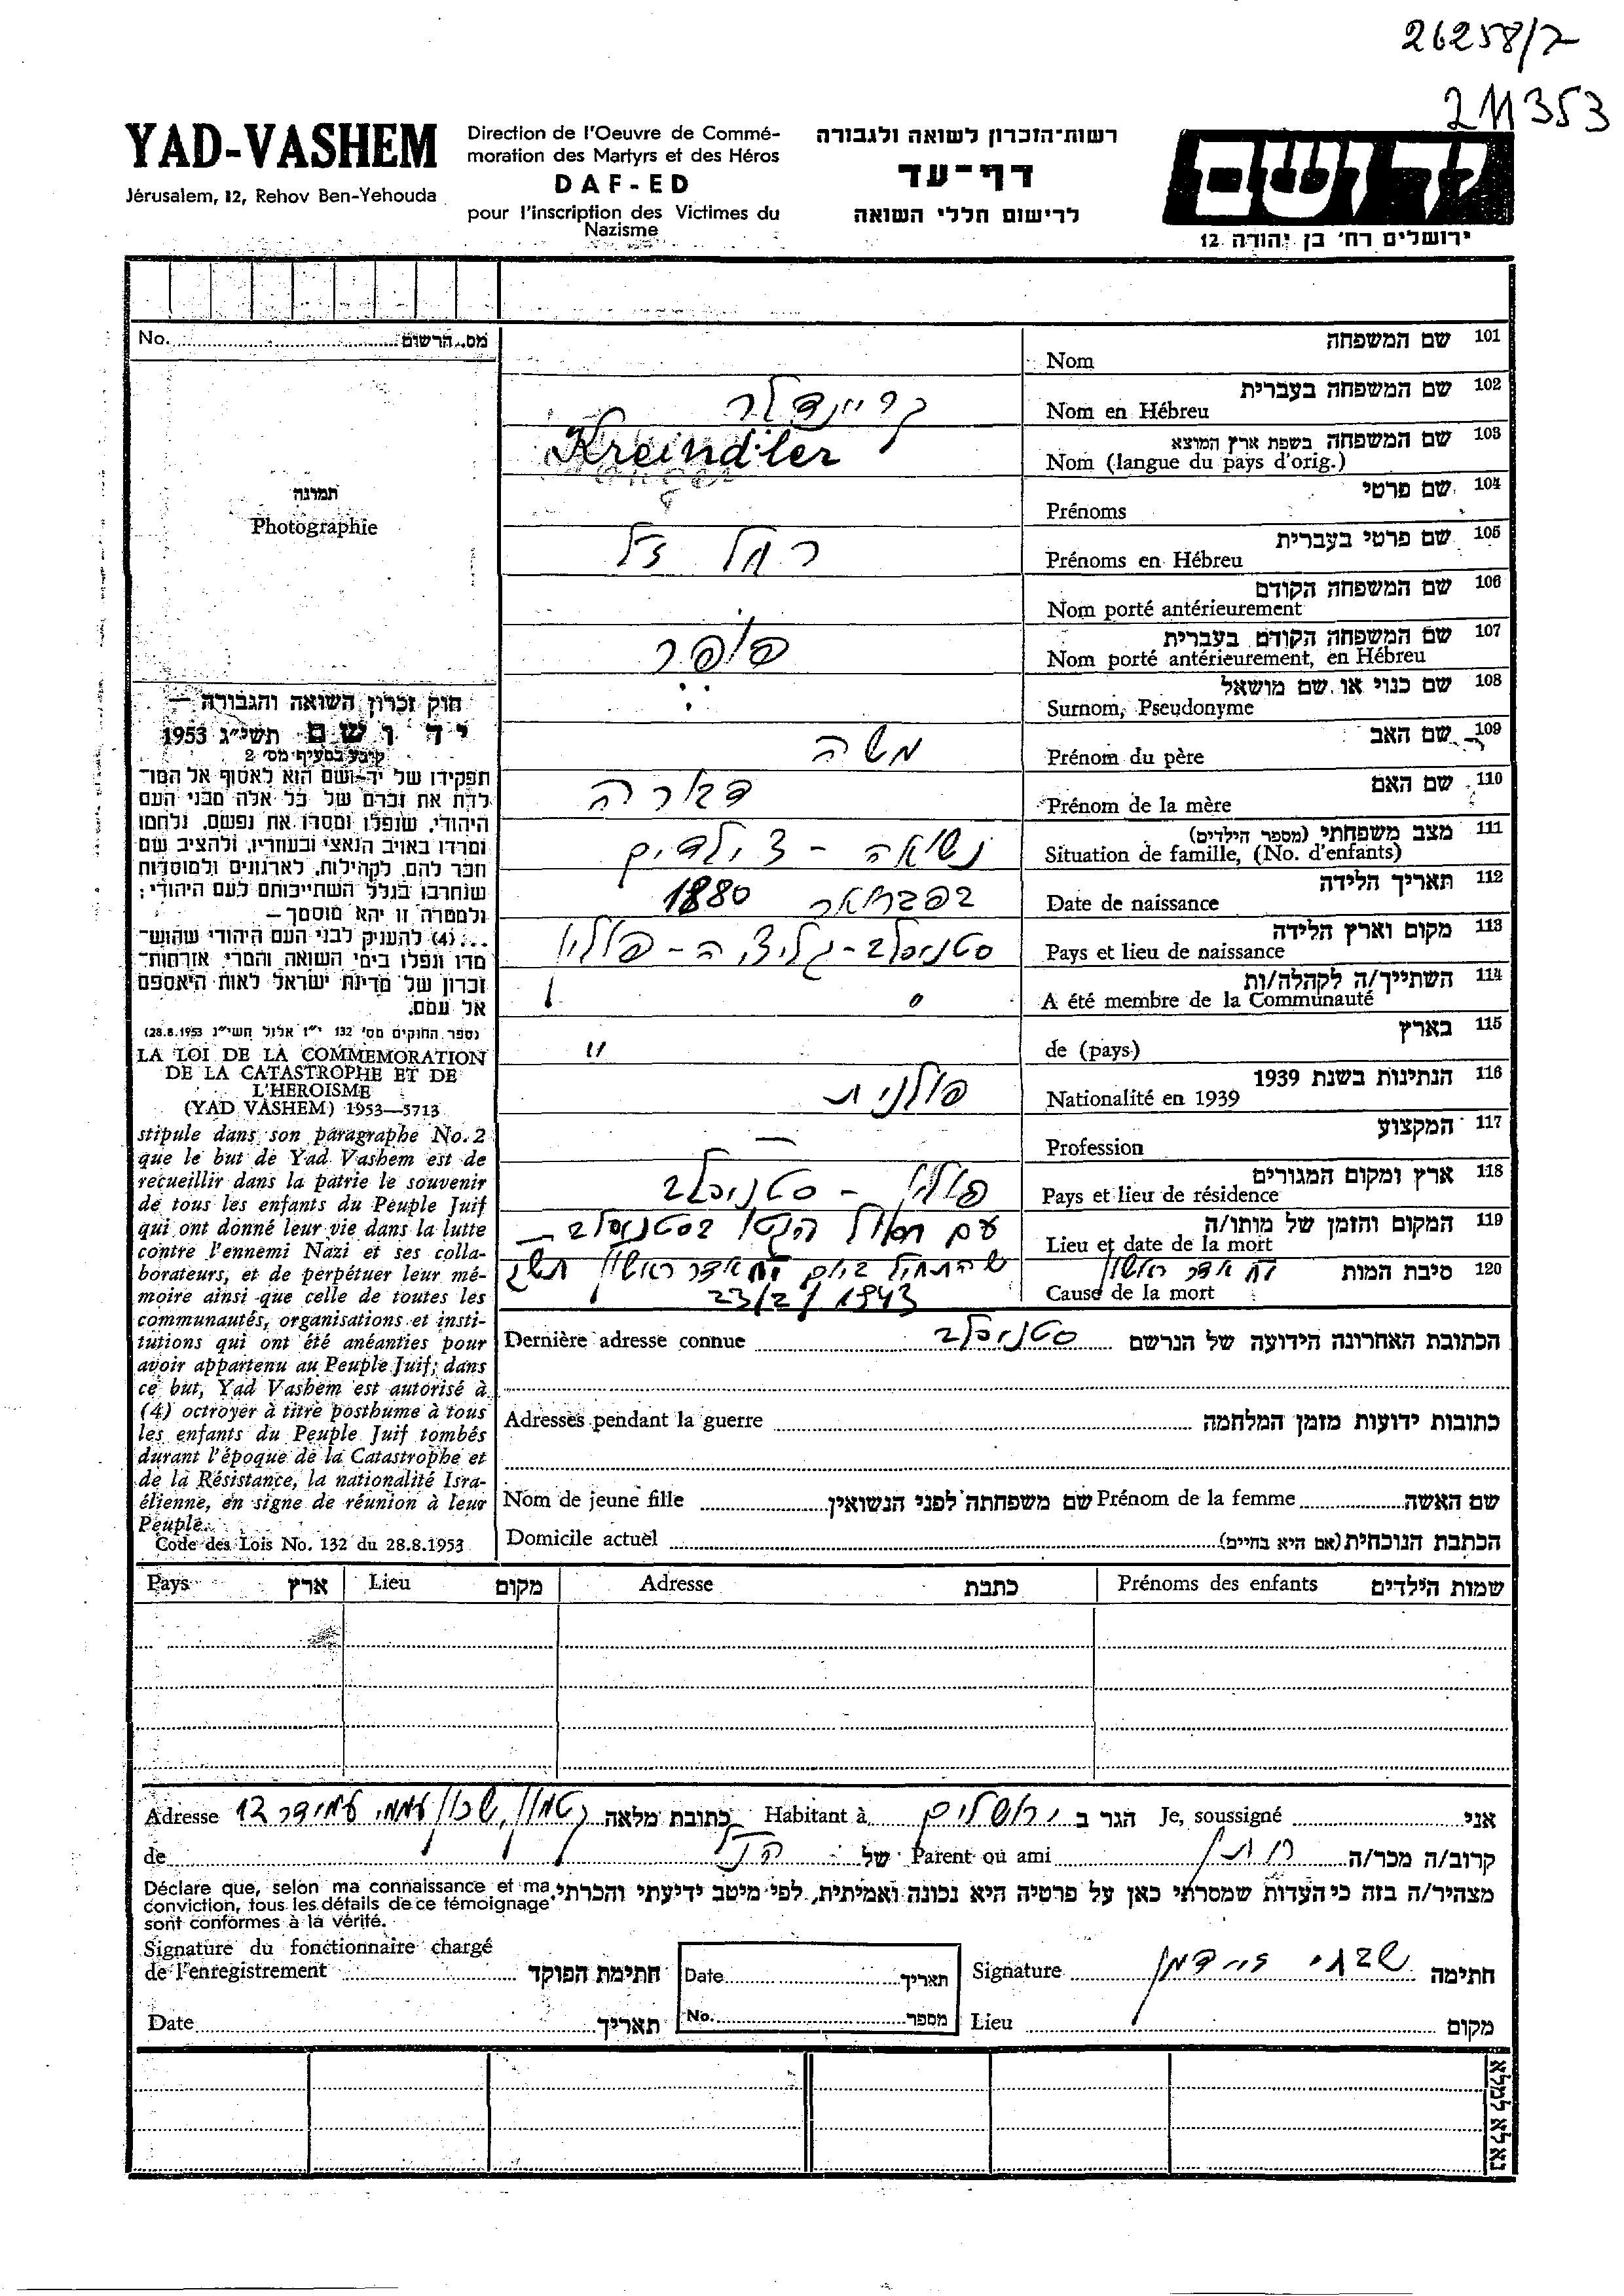 26258/7
211353
YAD-VASHEM
Jérusalem, 12, Rehov Ben-Yehouda
Direction de l'Oeuvre de Commé-
moration des Martyrs et des Héros
DAF-ED
pour l'inscription des Victimes du
Nazisme
רשות-הזכרון לשואה ולגבורה
דף-עד
לרישום חללי השואה
יד ושם
ירושלים רח' בן יהודה 12
No. מס. הרשום
תמונה
Photographie
101 שם המשפחה
Nom
102 שם המשפחה בעברית
Nom en Hébreu
קריינדלר
103 שם המשפחה בשפת ארץ המוצא
Nom (langue du pays d'orig.)
Kreindler
104 שם פרטי
Prénoms
105 שם פרטי בעברית
Prénoms en Hébreu
רחל
106 שם המשפחה הקודם
Nom porté antérieurement
107 שם המשפחה הקודם בעברית
Nom porté antérieurement, en Hébreu
פופר
108 שם כנוי או שם מושאל
Surnom, Pseudonyme
109 שם האב
Prénom du père
משה
110 שם האם
Prénom de la mère
דארה
111 מצב משפחתי (מספר הילדים)
Situation de famille, (No. d'enfants)
נשואה - 3 ילדים
112 תאריך הלידה
Date de naissance
בפברואר 1880
113 מקום וארץ הלידה
Pays et lieu de naissance
סטניסלב - גליציה - פולין
114 השתייך/ה לקהלה/ות
A été membre de la Communauté
115 בארץ
de (pays)
"
116 הנתינות בשנת 1939
Nationalité en 1939
פולנית
117 המקצוע
Profession
—
118 ארץ ומקום המגורים
Pays et lieu de résidence
פולין - סטניסלב
119 המקום והזמן של מותו/ה
Lieu et date de la mort
עם חסול הגטו בסטניסלב —
120 סיבת המות
Cause de la mort
שהתחיל ביום יח אדר ראשון
יח אדר ראשון
23/2/1943
חוק זכרון השואה והגבורה —
יד ושם תשי"ג 1953
קובע בסעיף מס' 2
תפקידו של יד-ושם הוא לאסוף אל המו-
לדת את זכרם של כל אלה מבני העם
היהודי, שנפלו ומסרו את נפשם, נלחמו
ומרדו באויב הנאצי ובעוזריו, ולהציב שם
וזכר להם, לקהילות, לארגונים ולמוסדות
שנחרבו בגלל השתייכותם לעם היהודי;
ולמטרה זו יהא מוסמך —
...(4) להעניק לבני העם היהודי שהוש-
מדו ונפלו בימי השואה והמרי אזרחות-
זכרון של מדינת ישראל לאות היאספם
אל עמם.
(ספר החוקים מס' 132 י"ז אלול תשי"ג 28.8.1953)
LA LOI DE LA COMMEMORATION
DE LA CATASTROPHE ET DE
L'HEROISME
(YAD VASHEM) 1953—5713
stipule dans son paragraphe No. 2
que le but de Yad Vashem est de
recueillir dans la patrie le souvenir
de tous les enfants du Peuple Juif
qui ont donné leur vie dans la lutte
contre l'ennemi Nazi et ses colla-
borateurs, et de perpétuer leur mé-
moire ainsi que celle de toutes les
communautés, organisations et insti-
tutions qui ont été anéanties pour
avoir appartenu au Peuple Juif; dans
ce but, Yad Vashem est autorisé à
(4) octroyer à titre posthume à tous
les enfants du Peuple Juif tombés
durant l'époque de la Catastrophe et
de la Résistance, la nationalité Isra-
élienne, en signe de réunion à leur
Peuple.
Code des Lois No. 132 du 28.8.1953
הכתובת האחרונה הידועה של הנרשם סטניסלב Dernière adresse connue
כתובות ידועות מזמן המלחמה Adresses pendant la guerre
שם האשה Prénom de la femme שם משפחתה לפני הנשואין Nom de jeune fille
הכתבת הנוכחית (אם היא בחיים) Domicile actuel
שמות הילדים Prénoms des enfants כתבת Adresse מקום Lieu ארץ Pays
אני Je, soussigné הגר ב ירושלים Habitant à כתובת מלאה קטמון, שכון עממי עמידר 12 Adresse
קרוב/ה מכר/ה Parent ou ami של de
מצהיר/ה בזה כי העדות שמסרתי כאן על פרטיה היא נכונה ואמיתית, לפי מיטב ידיעתי והכרתי.
Déclare que, selon ma connaissance et ma
conviction, tous les détails de ce témoignage
sont conformes à la vérité.
Signature du fonctionnaire chargé
de l'enregistrement חתימת הפוקד
Date תאריך
Date תאריך
No. מספר
חתימה Signature
מקום Lieu
נא לא למלא